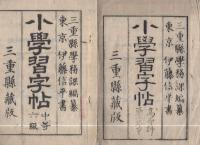 三重縣學務課編纂
東京 伊藤信平書
小學習字帖
中等
六級
三重縣藏版
三重縣學務課編纂
東京 伊藤信平書
小學習字帖
三重縣藏版